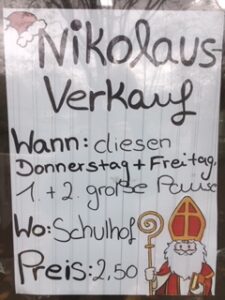 Nikolaus-
Verkauf
Wann: diesen
Donnerstag + Freitag,
1. + 2. große Pause
Wo: Schulhof
Preis: 2,50